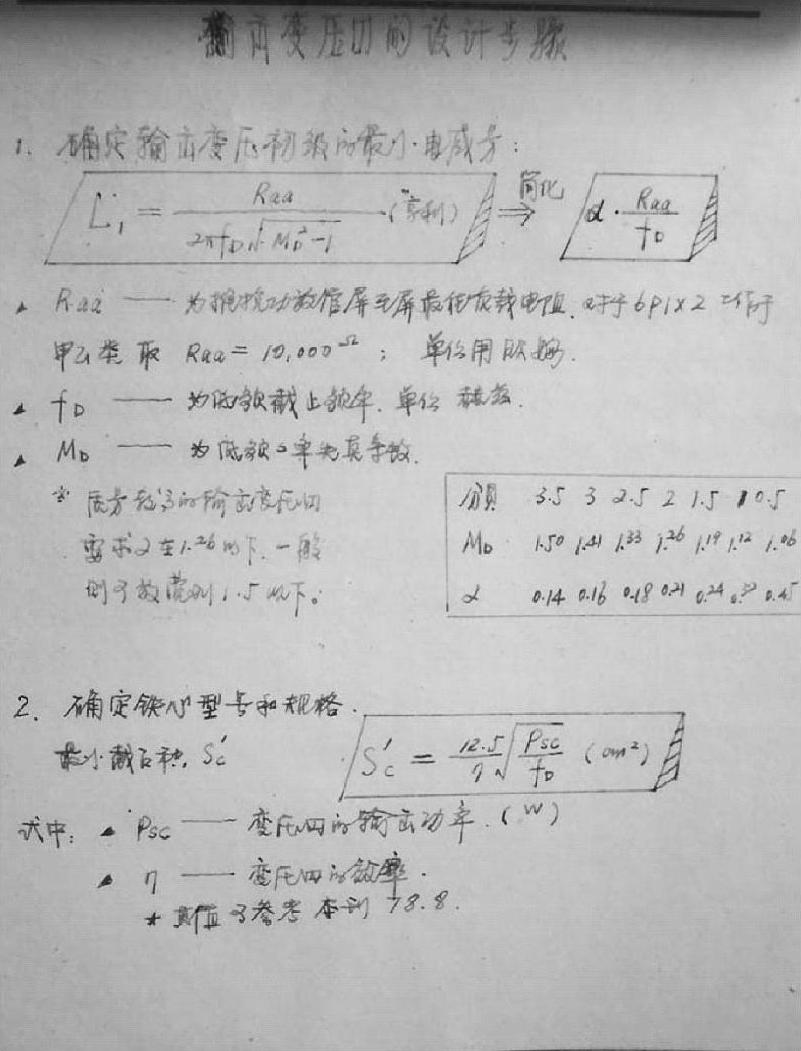 输出变压器的设计步骤
1. 确定输出变压初级的最小电感量:
L₁ = Raa / 2πf_D√(M_D²-1) (亨利) ⇒ 简化 α · Raa / f_D
▲ Raa —— 为推挽功放管屏至屏最佳负载电阻. 对于6P1×2 工作于
甲乙类取 Raa = 10,000 Ω ; 单位用欧姆.
▲ f_D —— 为低频截止频率. 单位 赫兹.
▲ M_D —— 为低频 率失真系数.
※ 质量较高的输出变压器
要求 在1.26以下. 一般
则可放宽到1.5以下。
分贝 3.5 3 2.5 2 1.5 1 0.5
M_D 1.50 1.41 1.33 1.26 1.19 1.12 1.06
α 0.14 0.16 0.18 0.21 0.24 0.32 0.45
2. 确定铁心型号和规格.
最小截面积. Sc′
Sc′ = 12.5/η √(Psc / f_D) (cm²)
式中: ▲ Psc —— 变压器的输出功率. (W)
▲ η —— 变压器的效率.
* 其值可参考本刊 78.8.